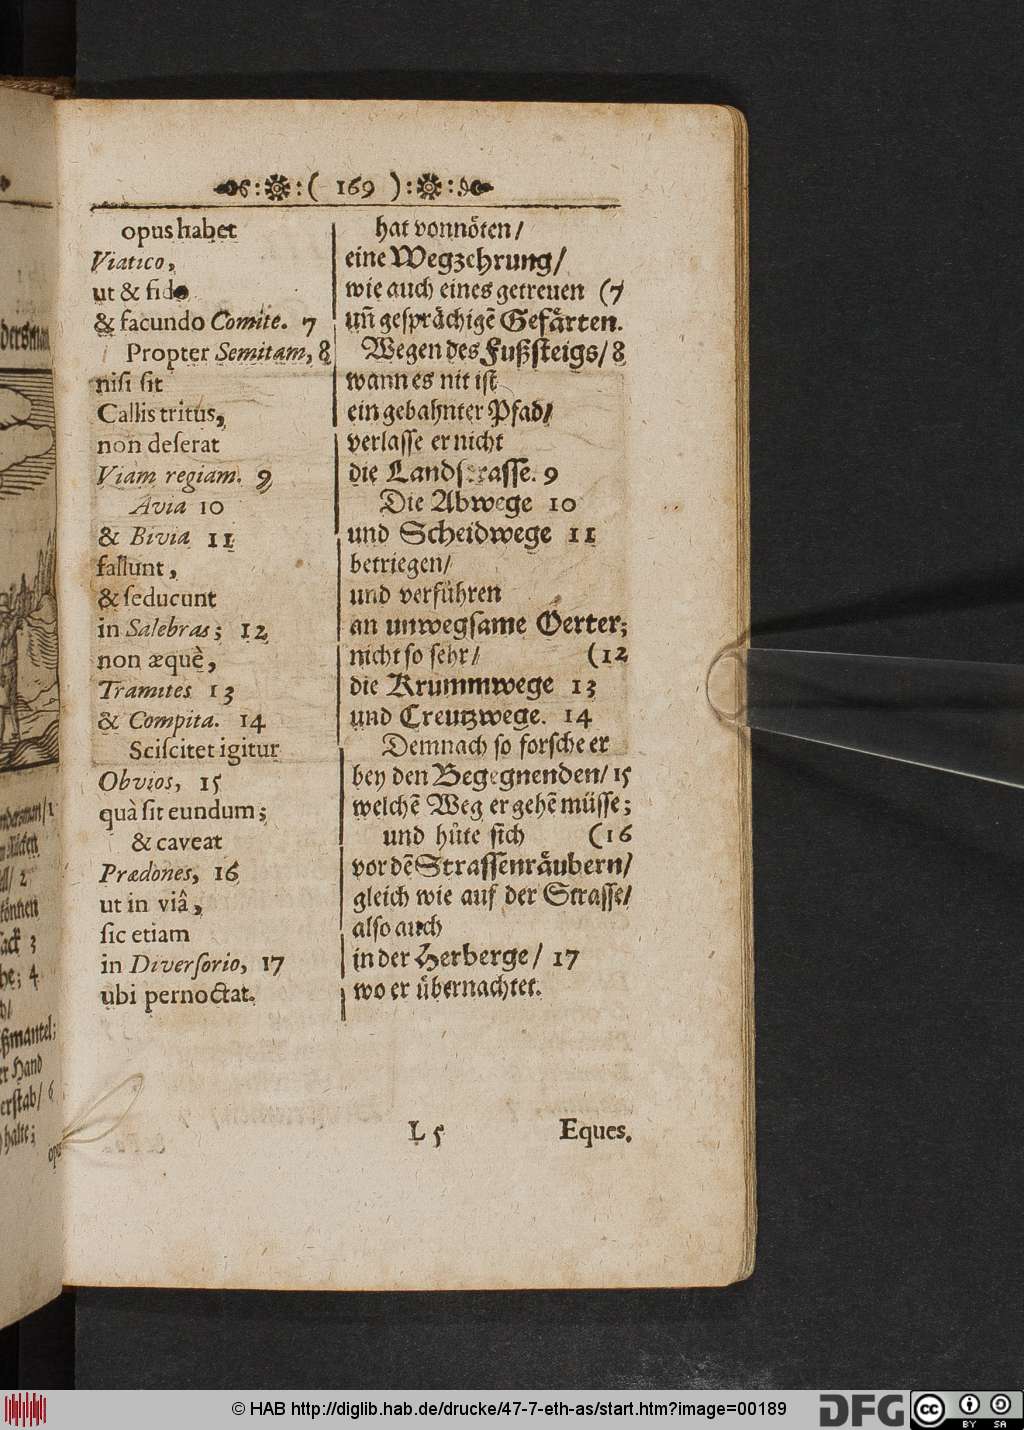 ( 169 )
opus habet
Viatico,
ut & fido
& facundo Comite. 7
Propter Semitam, 8
nisi sit
Callis tritus,
non deserat
Viam regiam. 9
Avia 10
& Bivia 11
fallunt,
& seducunt
in Salebras; 12
non æquè,
Tramites 13
& Compita. 14
Sciscitet igitur
Obvios, 15
quà sit eundum;
& caveat
Prædones, 16
ut in viâ,
sic etiam
in Diversorio, 17
ubi pernoctat.
hat vonnöten/
eine Wegzehrung/
wie auch eines getreuen (7
uñ gesprächigẽ Gefärten.
Wegen des Fußsteigs/ 8
wann es nit ist
ein gebahnter Pfad/
verlasse er nicht
die Landstrasse. 9
Die Abwege 10
und Scheidwege 11
betriegen/
und verführen
an unwegsame Oerter;
nicht so sehr/ (12
die Krummwege 13
und Creutzwege. 14
Demnach so forsche er
bey den Begegnenden/ 15
welchẽ Weg er gehẽ müsse;
und hüte sich (16
vor dẽ Strassenräubern/
gleich wie auf der Strasse/
also auch
in der Herberge/ 17
wo er übernachtet.
L 5 Eques.
dersman
ndersman/ 1
n Rücken
2
können
sack 3
he; 4
ßmantel;
er Hand
erstab/ 6
halte;
opus
© HAB http://diglib.hab.de/drucke/47-7-eth-as/start.htm?image=00189
DFG
cc
BY SA